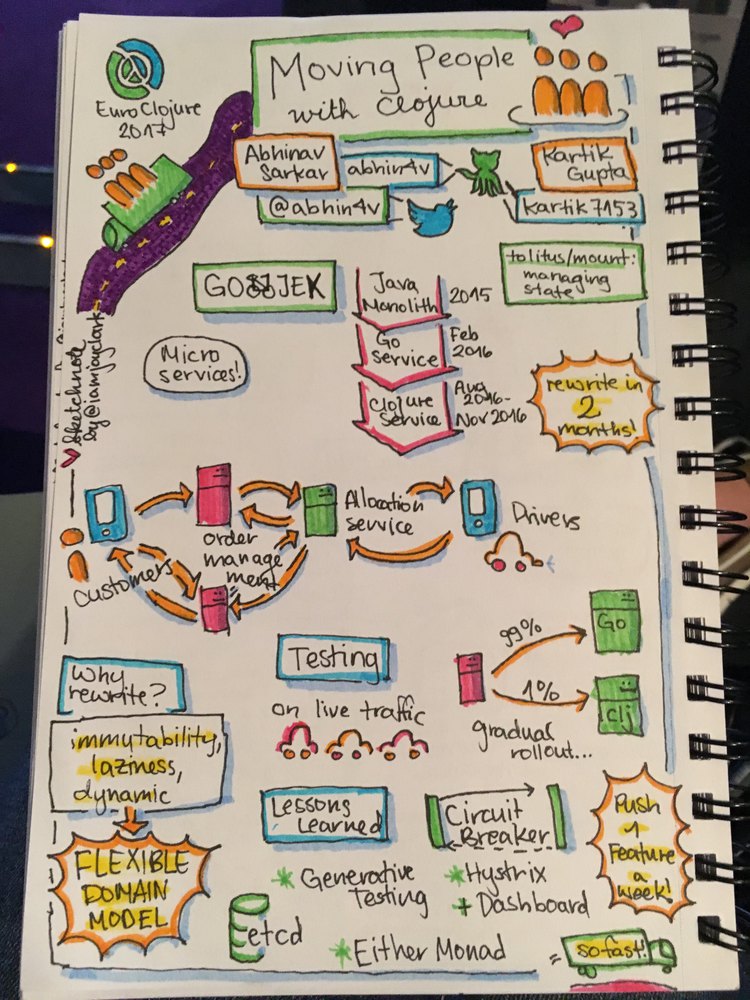 EuroClojure
2017
Moving People
with Clojure
Abhinav
Sarkar
abhin4v
@abhin4v
Kartik
Gupta
kartik7153
GOJEK
tolitus/mount:
managing
state
Java
Monolith
2015
Go
Service
Feb
2016
Clojure
Service
Aug
2016-
Nov 2016
Micro
services!
rewrite in
2
months!
Sketchnote
by @iamjayclark
Customers
order
manage
ment
Allocation
service
Drivers
Why
rewrite?
immutability,
laziness,
dynamic
FLEXIBLE
DOMAIN
MODEL
Testing
on live traffic
99%
Go
1%
clj
gradual
rollout...
Lessons
Learned
Circuit
Breaker
* Generative
Testing
* Hystrix
+ Dashboard
etcd
* Either Monad
Push
1
Feature
a
week!
= so fast!